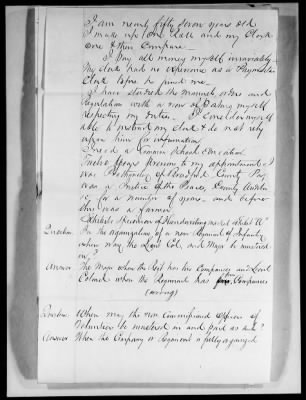 I am nearly fifty seven years old
I made up one Roll and my Clerk
one & then Compare
I Pay all money myself invariably
My clerk had no experience as a Paymasters
Clerk before he joined me.
I have studied the manual orders and
Regulations with a view of making myself
respecting my duties. I consider myself
able to instruct my clerk & do not rely
upon him for information
I rec'd a Common School Education
Twelve years previous to my appointment I
was Prothonotary of Bradford County Pa,
was a Justice of the Peace, County Auditor
&c for a number of years and before
this was a farmer.
Exhibits Specimen of Handwriting marked Exhibit "A"
Question In the organization of a new Regiment of Infantry
when may the Lieut Col. and Major be mustered
in?
Answer The Major when the Regt has six Companies and Lieut
Colonel when the Regiment has four Companies
(wrong)
Question When may the non Commissioned officers of
Volunteers be mustered in and paid as such?
Answer When the Company or Regiment is fully organized